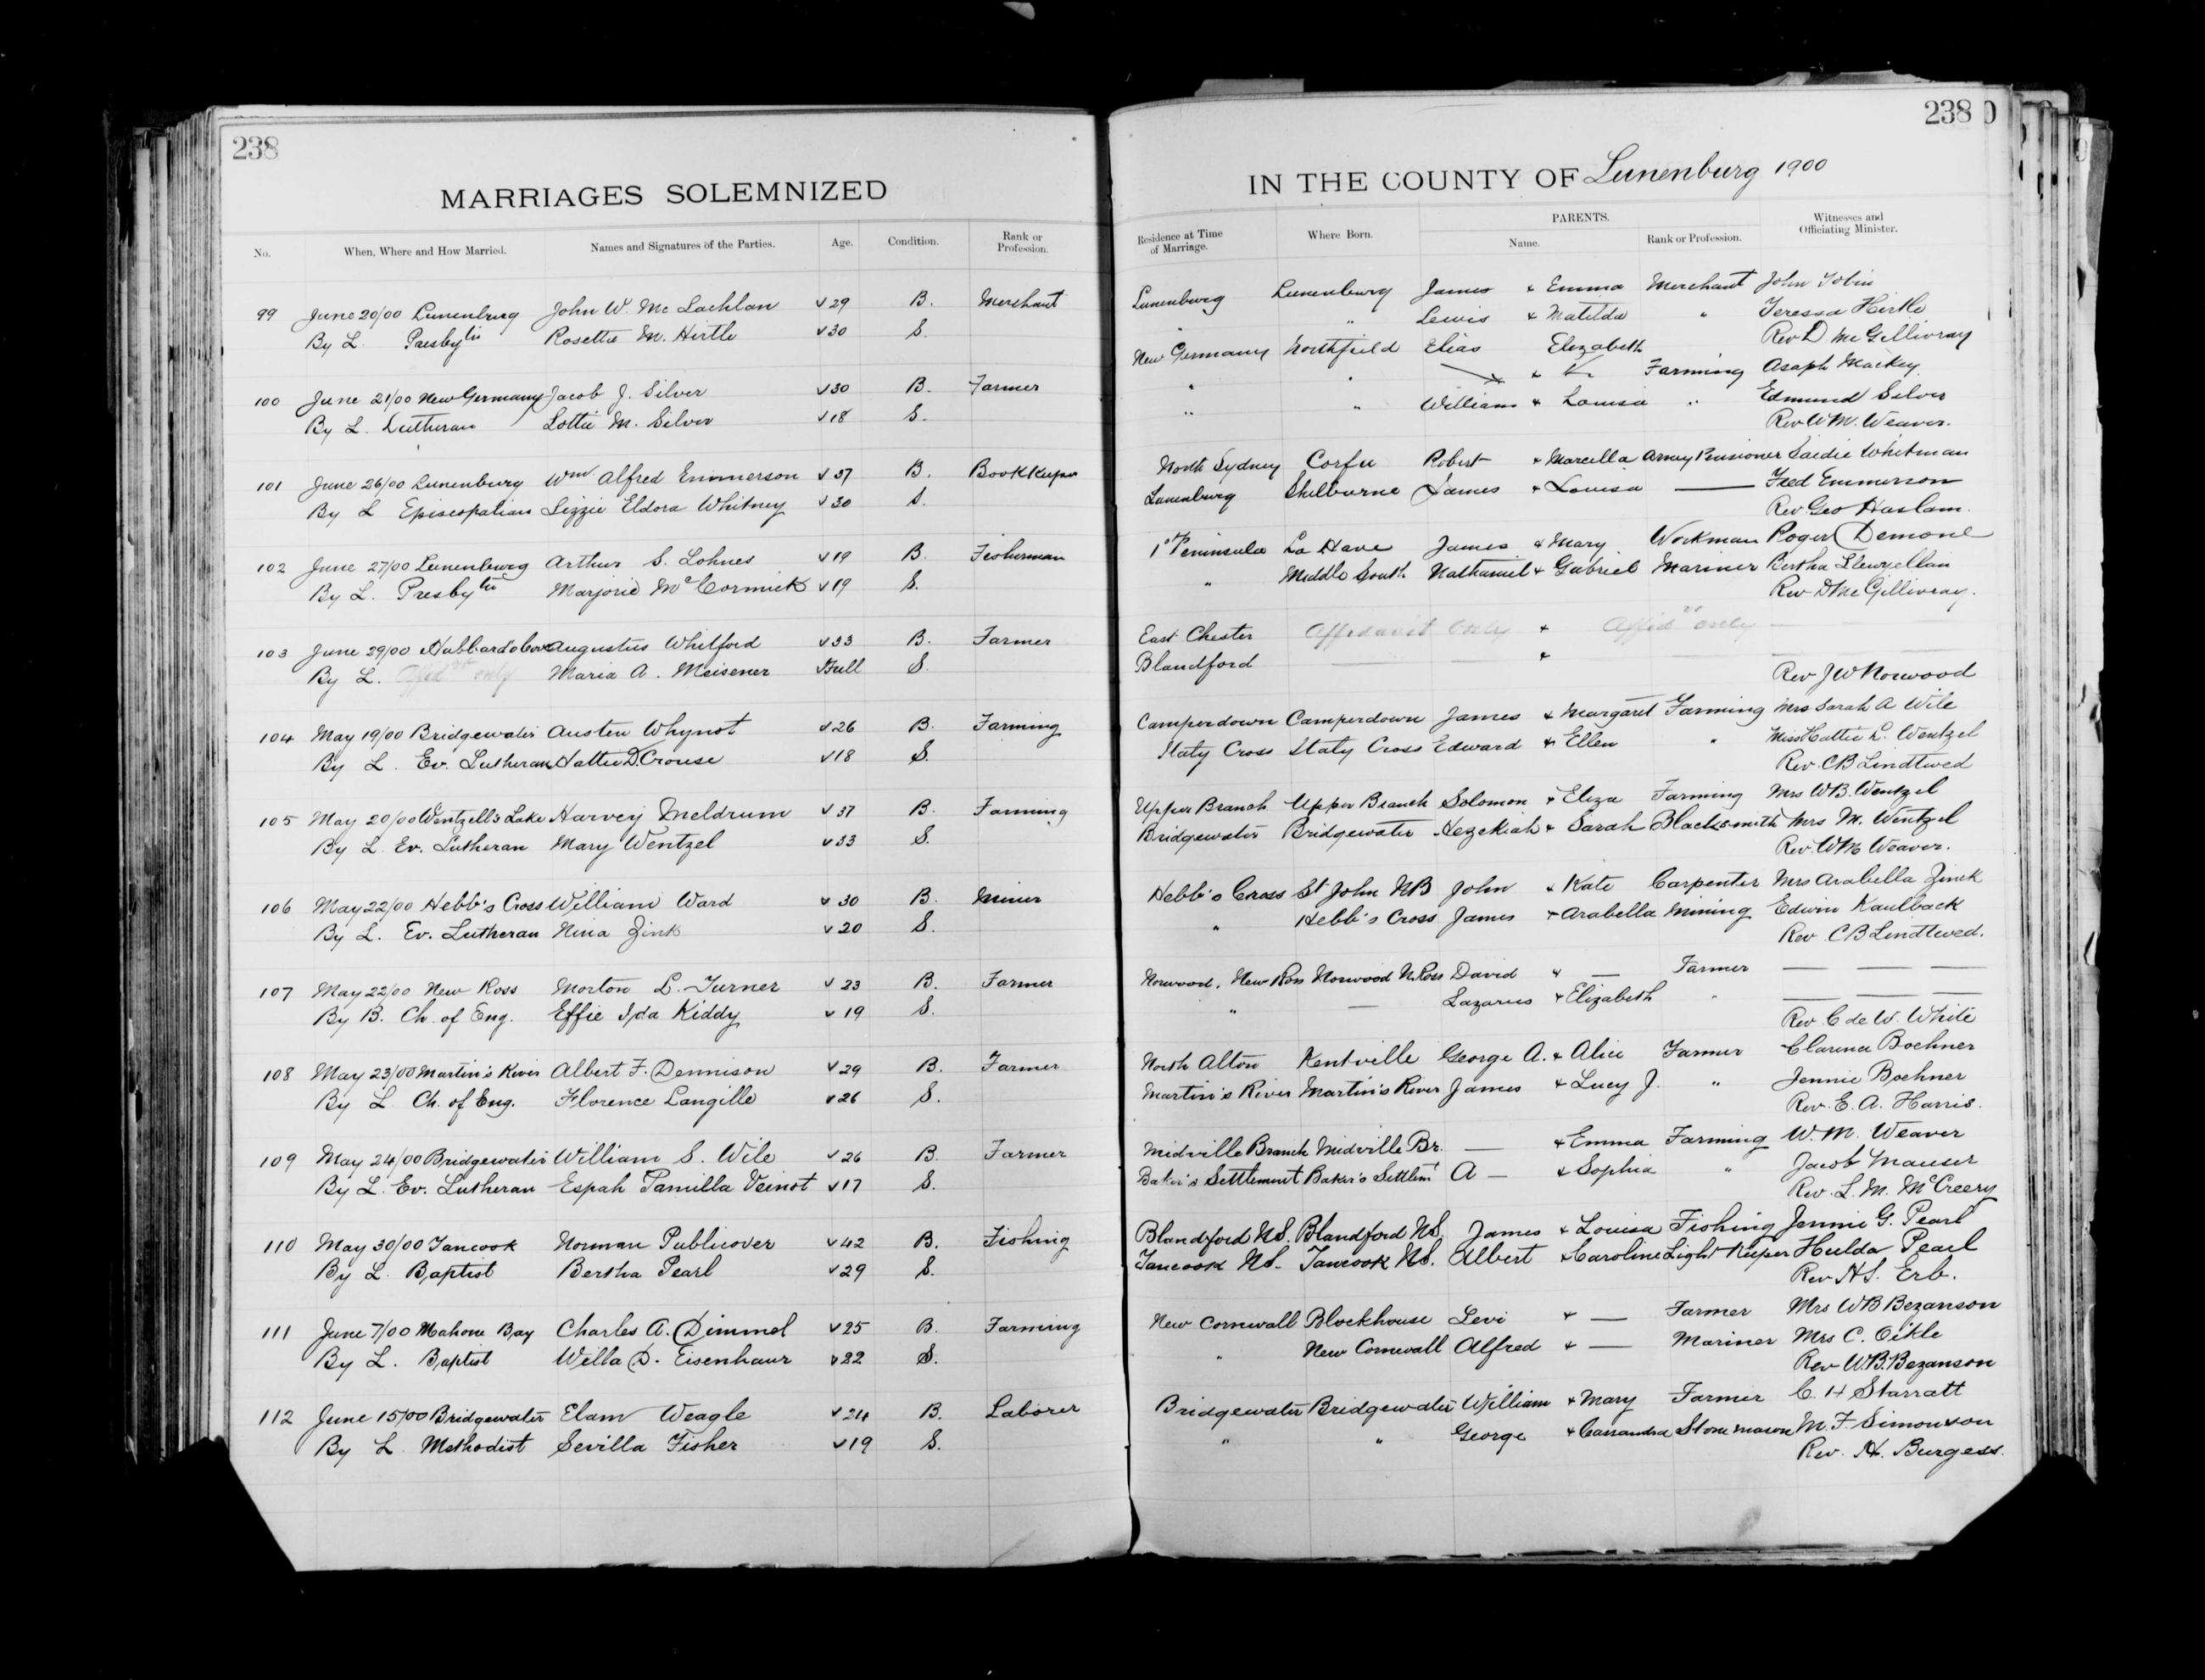 238
MARRIAGES SOLEMNIZED
No. When, Where and How Married. Names and Signatures of the Parties. Age. Condition. Rank or Profession.
99 June 20/00 Lunenburg John W. McLachlan √29 B. Merchant
By L. Presbytn Rosetta M. Hirtle √30 S.
100 June 21/00 New Germany Jacob J. Silver √30 B. Farmer
By L. Lutheran Lottie M. Silver √18 S.
101 June 26/00 Lunenburg Wm Alfred Emmerson √37 B. Bookkeeper
By L Episcopalian Lizzie Eldora Whitney √30 S.
102 June 27/00 Lunenburg Arthur S. Lohnes √19 B. Fisherman
By L. Presbytn Marjorie McCormick √19 S.
103 June 29/00 Hubbards Cove Augustus Whitford √33 B. Farmer
By L. Affidvt only Maria A. Meisener √Full S.
104 May 19/00 Bridgewater Austen Whynot √26 B. Farming
By L. Ev. Lutheran Hattie D. Crouse √18 S.
105 May 20/00 Wentzell's Lake Harvey Meldrum √37 B. Farming
By L Ev. Lutheran Mary Wentzel √33 S.
106 May 22/00 Hebb's Cross William Ward √30 B. Miner
By L. Ev. Lutheran Nina Zink √20 S.
107 May 22/00 New Ross Morton L. Turner √23 B. Farmer
By B. Ch. of Eng. Effie Ida Kiddy √19 S.
108 May 23/00 Martin's River Albert F. Dennison √29 B. Farmer
By L Ch. of Eng. Florence Langille √26 S.
109 May 24/00 Bridgewater William S. Wile √26 B. Farmer
By L. Ev. Lutheran Espah Pamilla Veinot √17 S.
110 May 30/00 Tancook Norman Publicover √42 B. Fishing
By L. Baptist Bertha Pearl √29 S.
111 June 7/00 Mahone Bay Charles A. Dimmel √25 B. Farming
By L. Baptist Willa D. Eisenhaur √22 S.
112 June 15/00 Bridgewater Elam Weagle √24 B. Laborer
By L Methodist Sevilla Fisher √19 S.
238
IN THE COUNTY OF Lunenburg 1900
Residence at Time of Marriage. Where Born. PARENTS. Name. Rank or Profession. Witnesses and Officiating Minister.
Lunenburg Lunenburg James & Emma Merchant John Tobin
" " Lewis & Matilda " Teressa Hirtle
Rev D McGillivray
New Germany Northfield Elias Elizabeth
" " & Farming Asaph Mackey
" " William & Louisa " Edmund Silver
Rev W M. Weaver.
North Sydney Corfu Robert & Marcella Army Pensioner Saidie Whitman
Lunenburg Shelburne James & Louisa — Fred Emmerson
Rev. Geo Haslam.
1st Peninsula La Have James & Mary Workman Roger Demone
" Middle South Nathaniel & Gabriel Mariner Bertha Llewyellan
Rev D McGillivray.
East Chester Affidavit Only & Affidvt only — —
Blandford — — & — —
Rev J W Norwood
Camperdown Camperdown James & Margaret Farming Mrs Sarah A Wile
Italy Cross Italy Cross Edward & Ellen " Miss Hattie L. Wentzel
Rev. C B Lindtwed
Upper Branch Upper Branch Solomon & Eliza Farming Mrs W B. Wentzel
Bridgewater Bridgewater Hezekiah & Sarah Blacksmith Mrs M. Wentzel
Rev. W M Weaver.
Hebb's Cross St John NB John & Kate Carpenter Mrs Arabella Zinck
" Hebb's Cross James & Arabella Mining Edwin Kaulback
Rev C B Lindtwed.
Norwood, New Ross Norwood N. Ross David & — Farmer — — —
" — Lazarus & Elizabeth " — — —
Rev. C de W. White
North Alton Kentville George A. & Alice Farmer Clarence Boehner
Martin's River Martin's River James & Lucy J. " Jennie Boehner
Rev. E. A. Harris.
Midville Branch Midville Br. — & Emma Farming W. M. Weaver
Baker's Settlement Baker's Settlemt A — & Sophia " Jacob Mauser
Rev. L. M. McCreery
Blandford NS. Blandford NS. James & Louisa Fishing Jennie G. Pearl
Tancook NS. Tancook NS. Albert & Caroline Light Keeper Hulda Pearl
Rev H S. Erb.
New Cornwall Blockhouse Levi & — Farmer Mrs W B Bezanson
" New Cornwall Alfred & — Mariner Mrs C. Oikle
Rev W. B. Bezanson
Bridgewater Bridgewater William & Mary Farmer C. H Starratt
" " George & Cassandra Stone mason M. F. Simonson
Rev. H. Burgess.